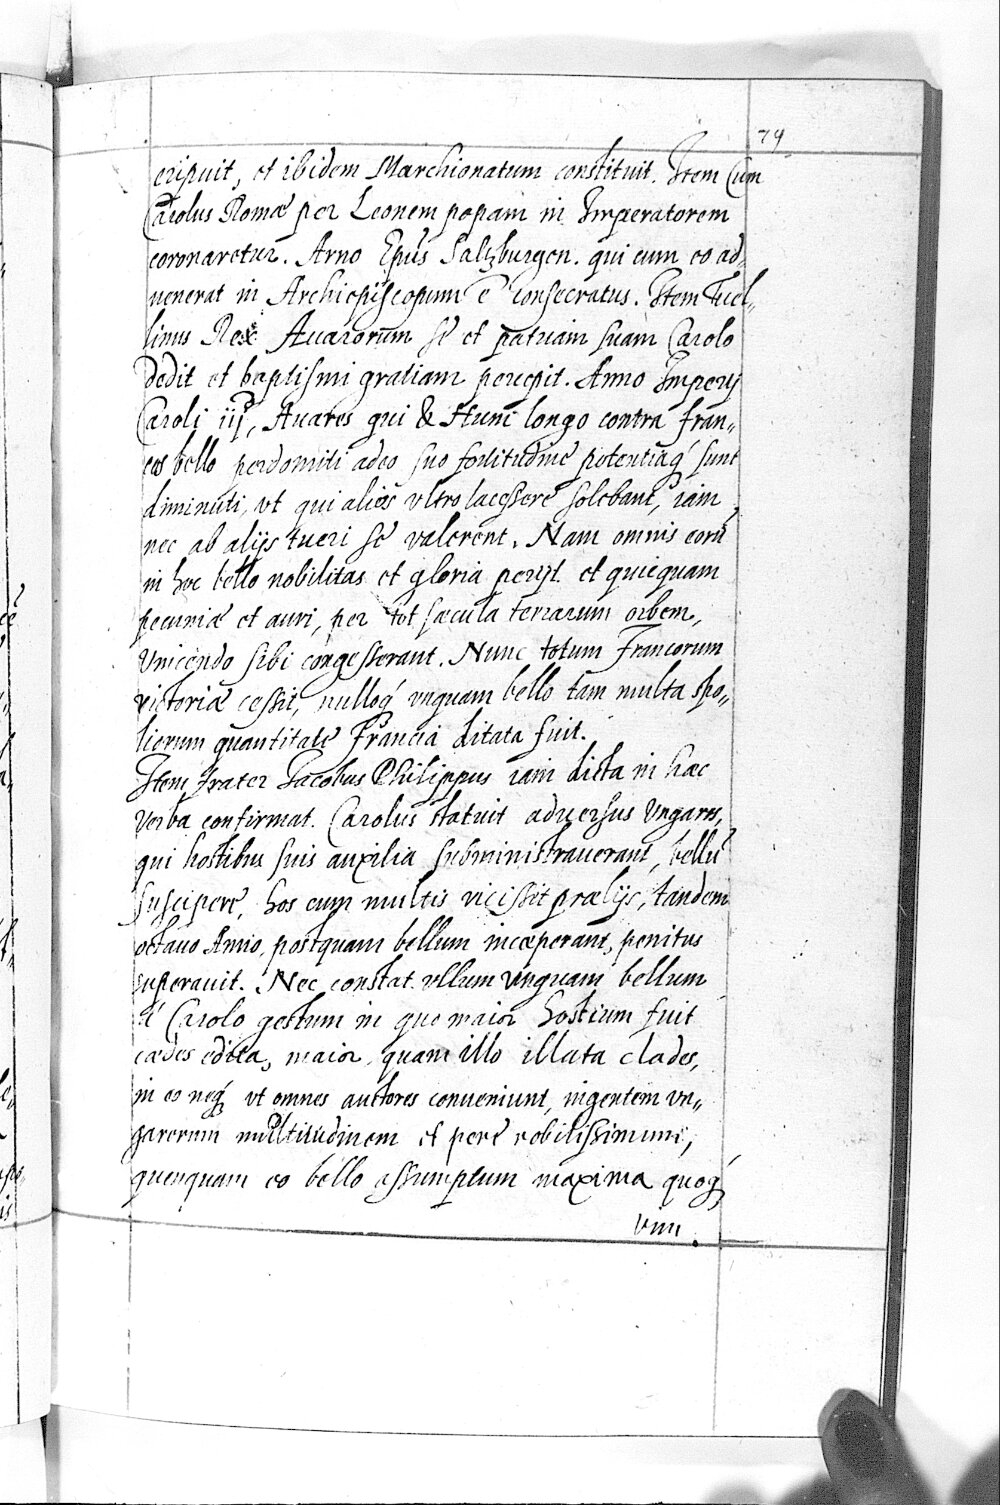 79
eripuit, et ibidem Marchionatum constituit. Item Cum
Carolus Romæ per Leonem papam in Imperatorem
coronaretur. Arno Epũs Saltzburgen. qui cum eo ad„
uenerat in Archiepiscopum ẽ consecratus. Item Tuel„
linus Rex Auarorum se et patriam suam Carolo
dedit et baptismi gratiam percepit. Anno Imperij
Caroli iij, Auares qui & Huni longo contra fran„
cos bello perdomiti adeo suo fortitudine potentiaq́ sunt
diminuti, vt qui alios vltro lacessere solebant, iam
nec ab alijs tueri se valerent. Nam omnis eorũ
in hoc bello nobilitas et gloria perijt et quicquam
pecuniæ et auri, per tot sæcula terrarum orbem,
Vincendo sibi congesserant. Nunc totum francorum
victoriæ cessit, nulloq́ vnquam bello tam multa spo„
liorum quantitate Francia ditata fuit.
Item frater Jacobus Philippus iam dicta in hæc
verba confirmat. Carolus statuit aduersus Vngaros,
qui hostibus suis auxilia subministrauerant, bellũ
suscipere, hos cum multis vicissit prælijs, tandem
octauo Anno, postquam bellum incæperant, penitus
superauit. Nec constat vllum vnquam bellum
á Carolo gestum in quo maior hostium fuit
cædes edita, maior quam illo illata clades,
in eo neq́ vt omnes auctores conueniunt, ingentem vn„
garorum multitudinem et pere nobilissimum,
quenquam eo bello assumptum maxima quoq́
vim